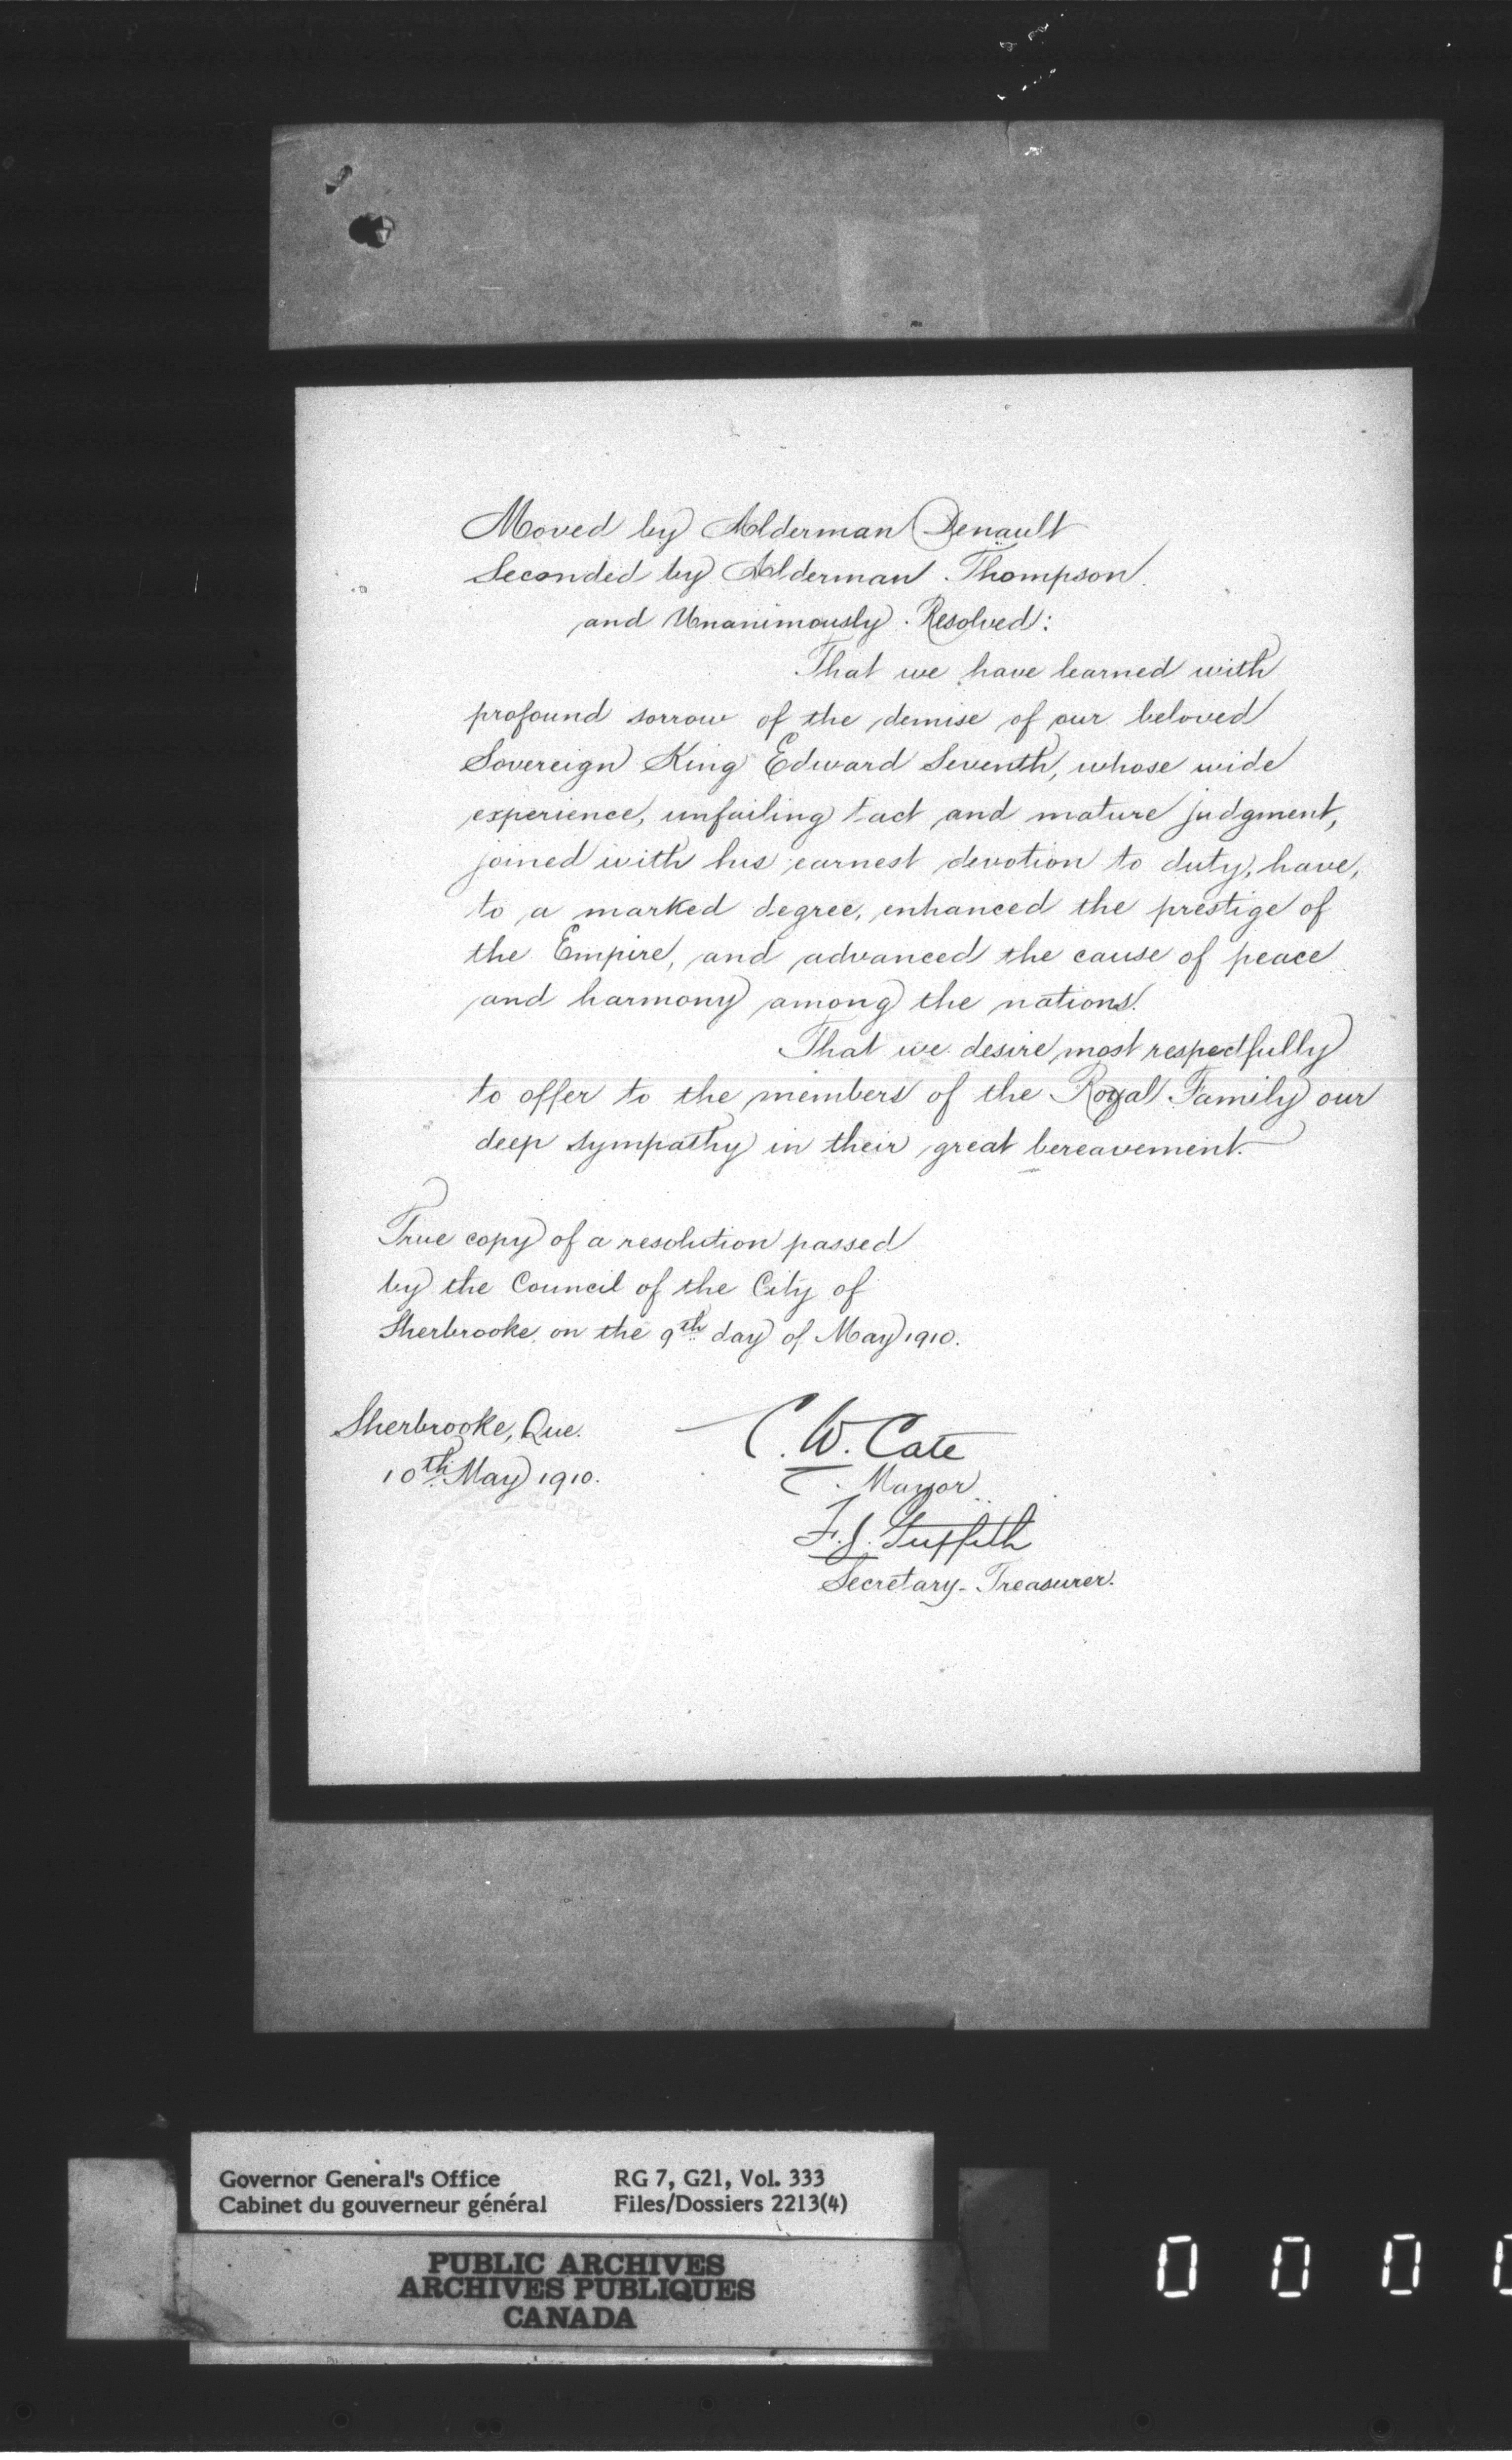 Moved by Alderman Denault
Seconded by Alderman Thompson
and Unanimously Resolved:
That we have learned with
profound sorrow of the demise of our beloved
Sovereign King Edward Seventh, whose wide
experience, unfailing tact and mature judgment,
joined with his earnest devotion to duty, have,
to a marked degree, enhanced the prestige of
the Empire, and advanced the cause of peace
and harmony among the nations.
That we desire most respectfully
to offer to the members of the Royal Family our
deep sympathy in their great bereavement.
True copy of a resolution passed
by the Council of the City of
Sherbrooke on the 9th day of May 1910.
Sherbrooke, Que.
10th May 1910.
C. W. Cate
Mayor
F. J. Griffith
Secretary-Treasurer.
Governor General's Office
Cabinet du gouverneur général
RG 7, G21, Vol. 333
Files/Dossiers 2213(4)
PUBLIC ARCHIVES
ARCHIVES PUBLIQUES
CANADA
0 0 0